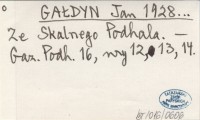 GAŁDYN Jan 1928...
Ze Skalnego Podhala. —
Gaz. Podh. 16, nry 12, 13, 14.